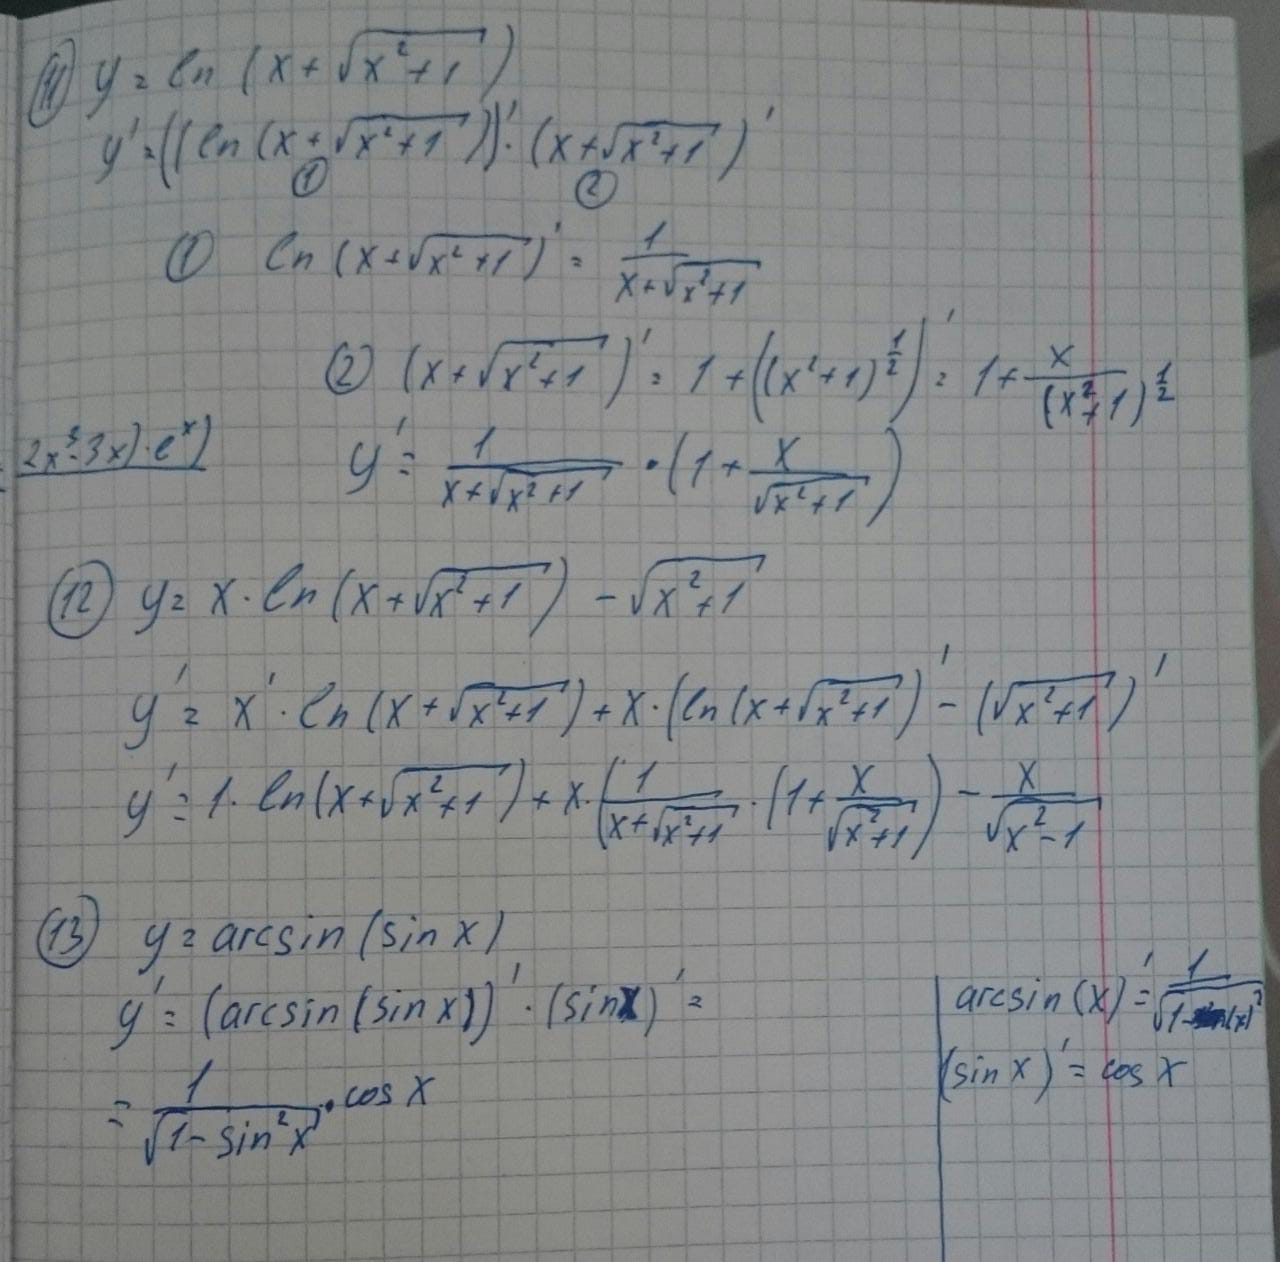 11 y = ln (x + √(x²+1))
y' = ((ln (x + √(x²+1)))' · (x + √(x²+1))'
① ②
① ln (x + √(x²+1))' = 1/(x + √(x²+1))
② (x + √(x²+1))' = 1 + ((x²+1)^(1/2))' = 1 + x/(x²+1)^(1/2)
2x³-3x)·eˣ)
y' = 1/(x + √(x²+1)) · (1 + x/√(x²+1))
12 y = x · ln (x + √(x²+1)) - √(x²+1)
y' = x' · ln (x + √(x²+1)) + x · (ln (x + √(x²+1))' - (√(x²+1))'
y' = 1 · ln (x + √(x²+1)) + x · (1/(x + √(x²+1)) · (1 + x/√(x²+1)) - x/√(x²-1)
13 y = arcsin (sin x)
y' = (arcsin (sin x))' · (sin x)' =
= 1/√(1 - sin²x) · cos x
arcsin (x)' = 1/√(1-(x)²
(sin x)' = cos x